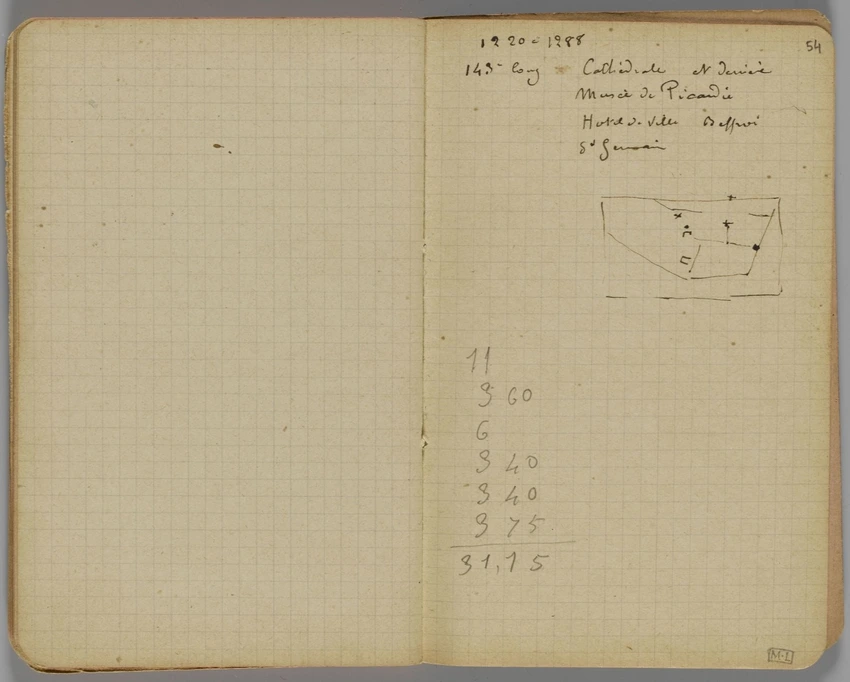 54
1220-1288
145 long Cathédrale et derrière
Musée de Picardie
Hotel de Ville Beffroi
St Germain
11
3 60
6
3 40
3 40
3 75
31,15
M.L